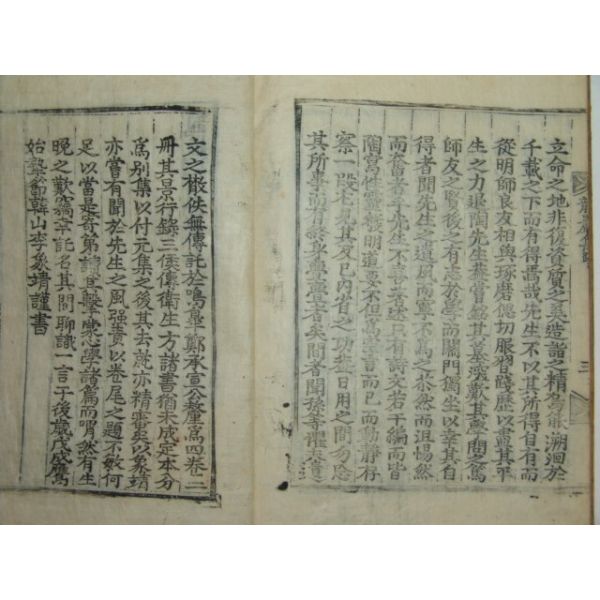 立命之地非復資質之美造詣之精烏能溯洄於
千載之下而有得焉哉先生不以其所得自有而
從明師良友相與琢磨偲切服習踐歷以盡其平
生之力退陶先生蓋嘗銘其墓深歎其
師友之賢後之有志於學而閉門獨坐以幸其自
得者聞先生之遺風而寧不爲之茫然而沮惕然
而奮者乎先生不喜著述只有詩文若干編而皆
陶寫性靈發明道要不但爲空言而已而動靜存
察一段不見其友已內省之功於日用之間勿忘
其所事而有終身
文之散佚無傳託於鳴皐鄭承宣公釐爲四卷二
冊其景行錄三侯傳衛生方諸書猶未成定本分
爲別集以付元集之後其去就亦精審矣以象靖
亦嘗有聞於先生之風强責以卷尾之題不敏何
足以當是寄第讀其擊蒙學諸篇而喟然有生
晩之歎竊幸託名其間聊識一言于後歲戊戌鴈
始摯翁韓山李象靖謹書